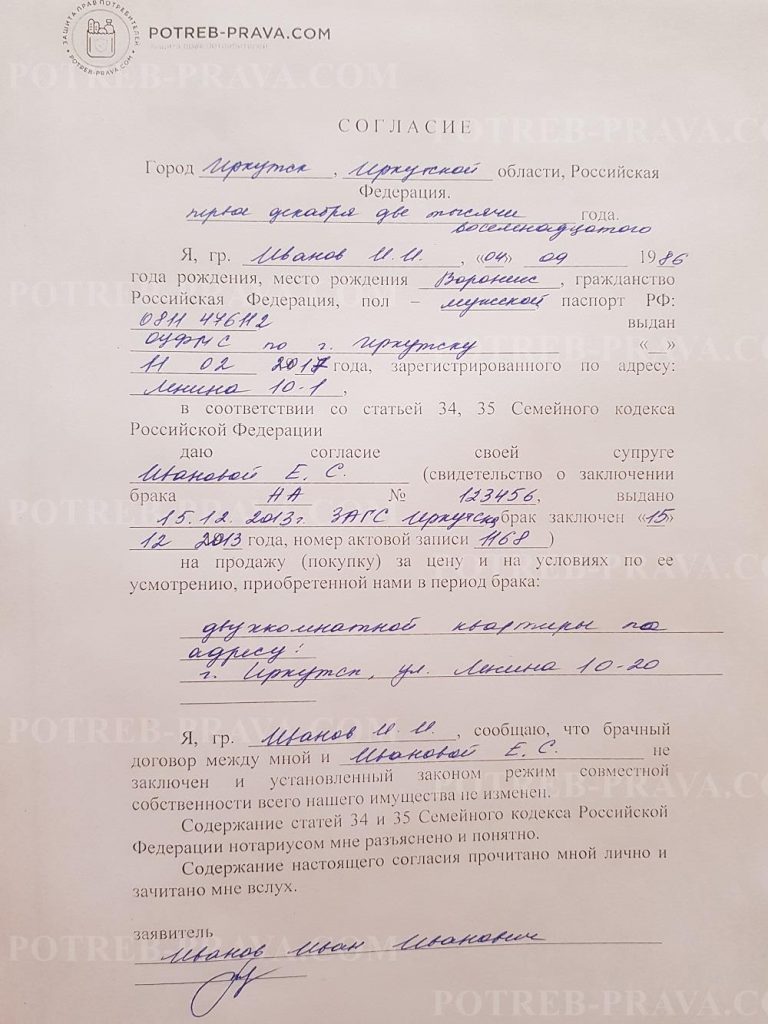 ЗАЩИТА ПРАВ ПОТРЕБИТЕЛЕЙ
POTREB-PRAVA.COM
POTREB-PRAVA.COM
Защита прав потребителей
POTREB-PRAVA.COM
POTREB-PRAVA.COM
СОГЛАСИЕ
Город Иркутск, Иркутской области, Российская
Федерация.
первое декабря две тысячи года.
восемнадцатого
Я, гр. Иванов И.И., «04» 09 1986
года рождения, место рождения Воронеж, гражданство
POTREB-PRAVA.COM
Российская Федерация, пол – мужской паспорт РФ:
0811 476112 выдан
ОУФМС по г. Иркутску «_»
11 02 2017 года, зарегистрированного по адресу:
Ленина 10-1,
в соответствии со статьей 34, 35 Семейного кодекса
Российской Федерации
даю согласие своей супруге
Ивановой Е. С. (свидетельство о заключении
брака НА № 123456, выдано
POTREB-PRAVA.COM
15.12.2013г. ЗАГС Иркутска брак заключен «15»
12 2013 года, номер актовой записи 1168)
на продажу (покупку) за цену и на условиях по ее
POTREB-PRAVA.COM
усмотрению, приобретенной нами в период брака:
двухкомнатной квартиры по
адресу:
г. Иркутск, ул. Ленина 10-20
POTREB-PRAVA.COM
Я, гр. Иванов И.И., сообщаю, что брачный
договор между мной и Ивановой Е.С. не
заключен и установленный законом режим совместной
POTREB-PRAVA.COM
собственности всего нашего имущества не изменен.
Содержание статей 34 и 35 Семейного кодекса Российской
Федерации нотариусом мне разъяснено и понятно.
Содержание настоящего согласия прочитано мной лично и
зачитано мне вслух.
заявитель
POTREB-PRAVA.COM
Иванов Иван Иванович
POTREB-PRAVA.COM